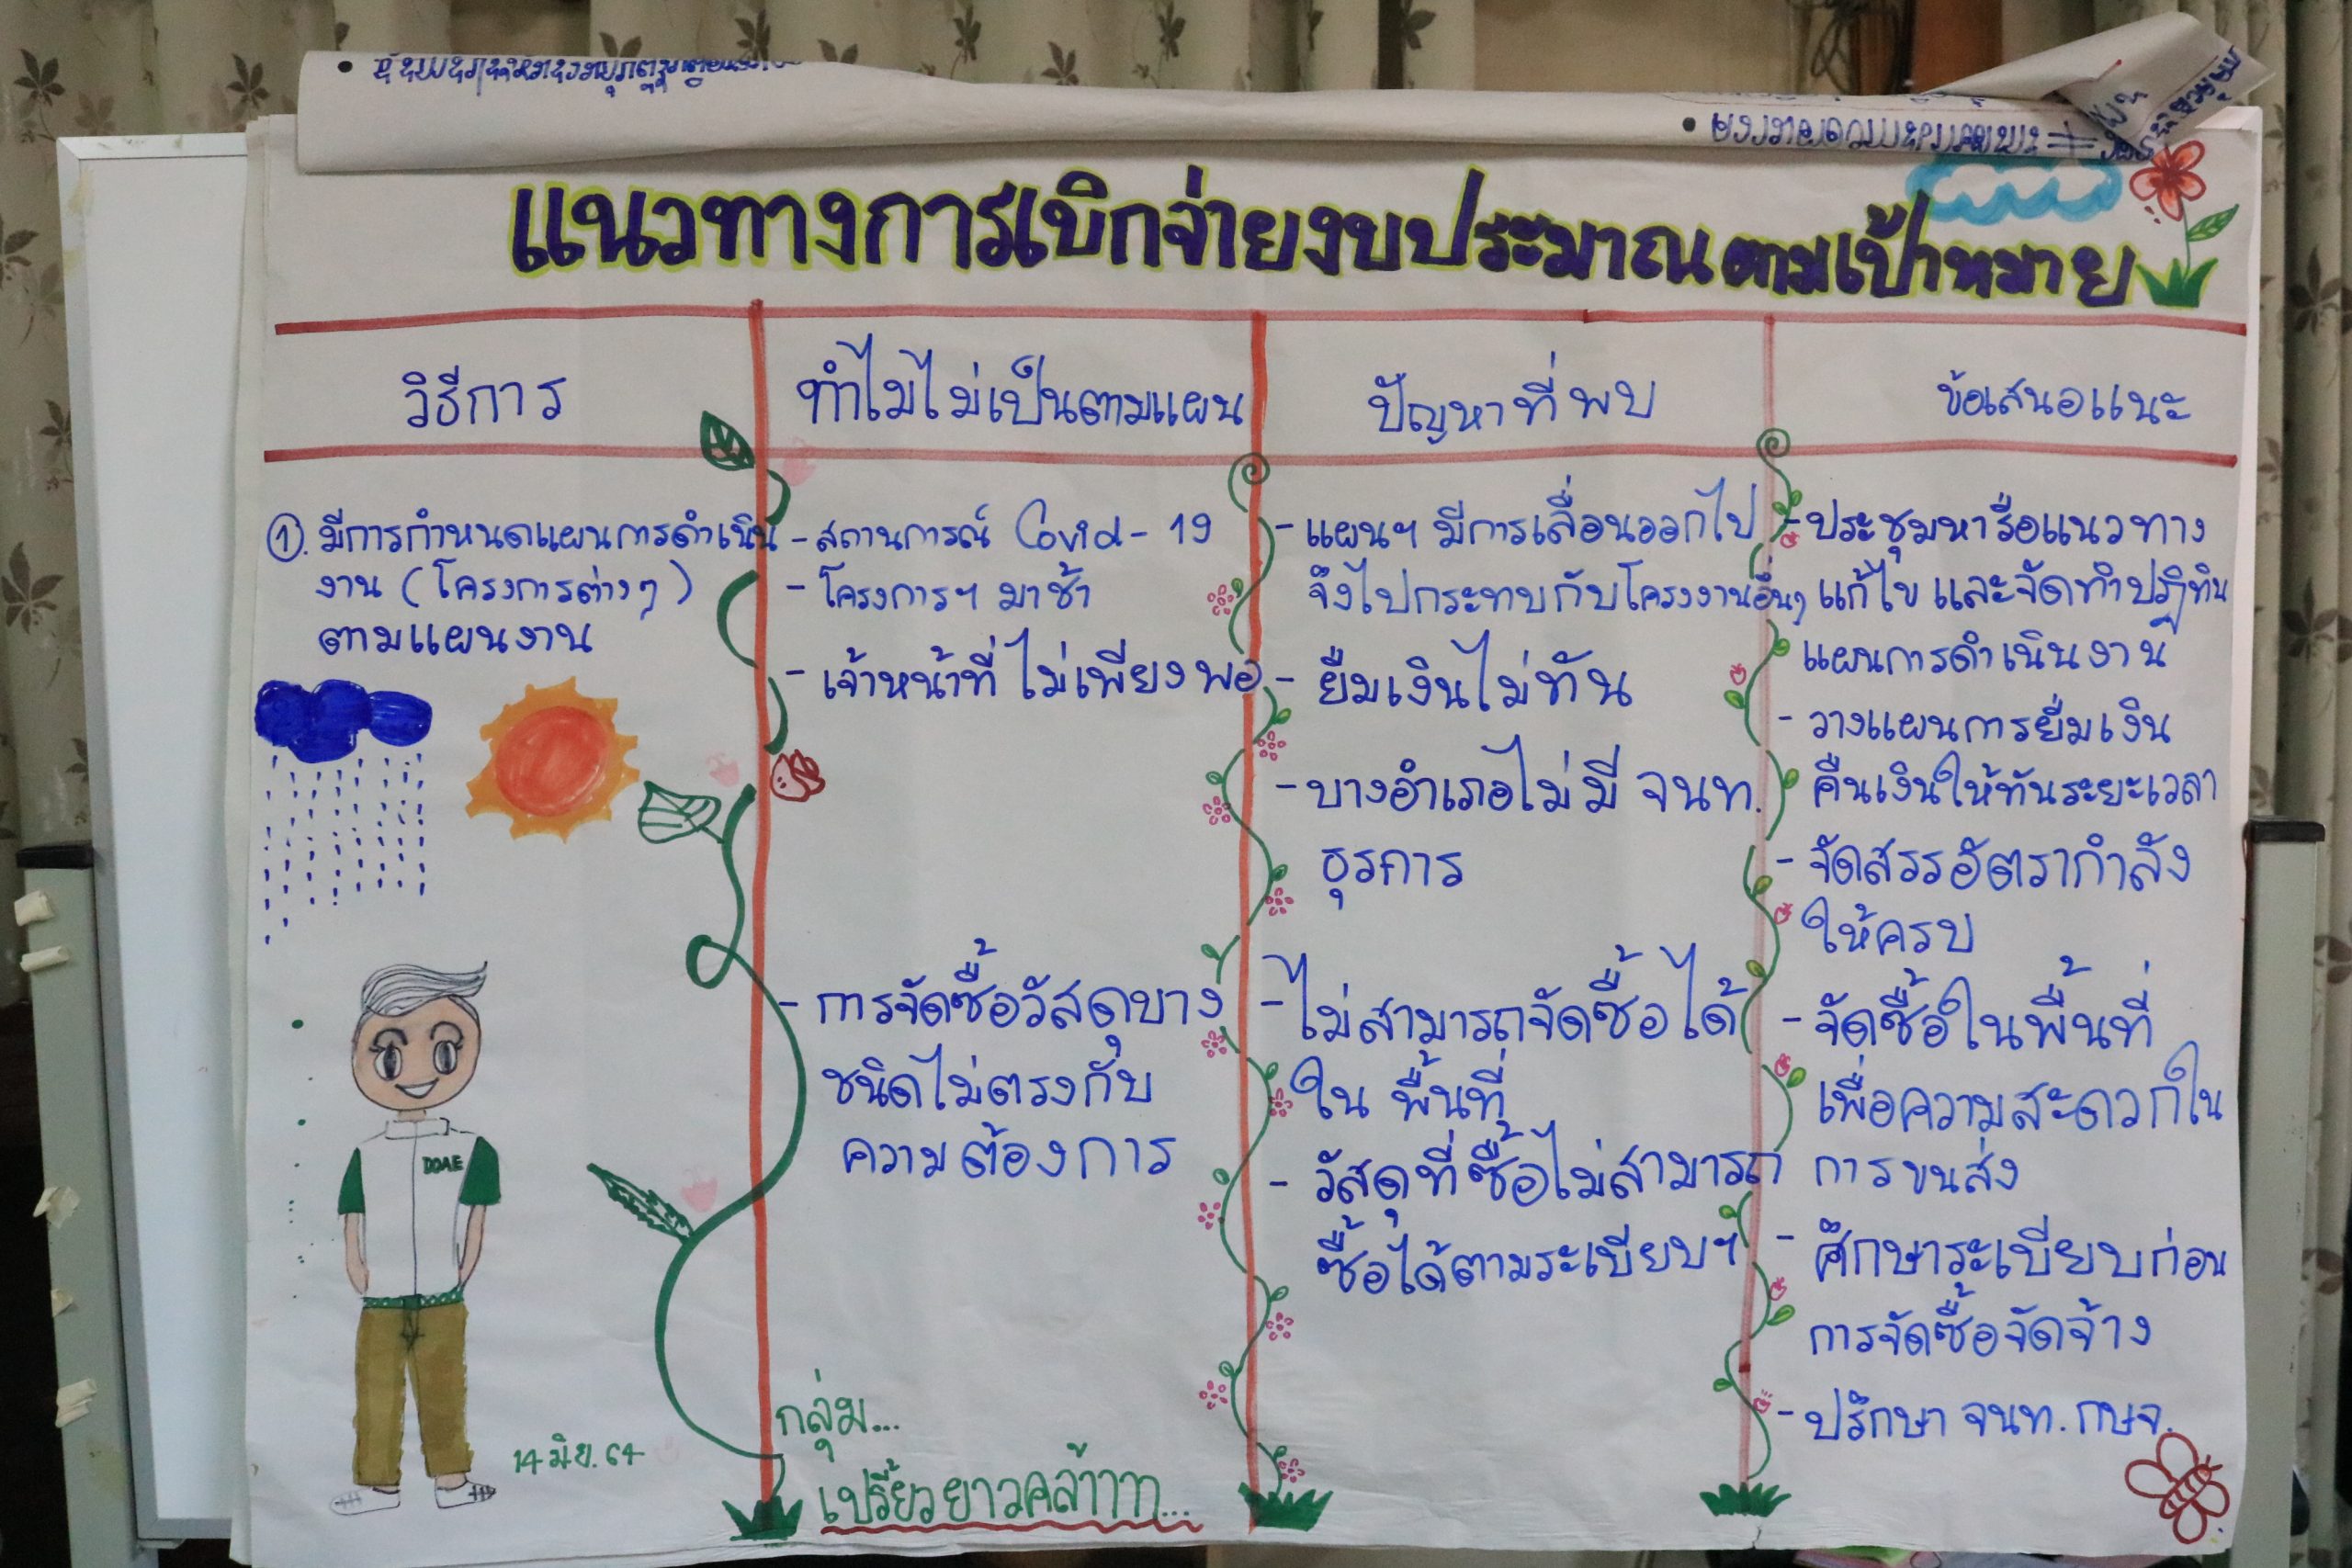 แนวทางการเบิกจ่ายงบประมาณตามเป้าหมาย
วิธีการ
① มีการกำหนดแผนการดำเนิน
งาน (โครงการต่างๆ)
ตามแผนงาน
DOAE
14 มิ.ย. 64
ทำไมไม่เป็นตามแผน
- สถานการณ์ Covid - 19
- โครงการฯ มาช้า
- เจ้าหน้าที่ ไม่เพียงพอ
- การจัดซื้อวัสดุบาง
ชนิดไม่ตรงกับ
ความต้องการ
กลุ่ม...
เปรี้ยวยาวคล้าาา...
ปัญหาที่พบ
- แผนฯ มีการเลื่อนออกไป
จึงไปกระทบกับโครงงานอื่นๆ
- ยืมเงินไม่ทัน
- บางอำเภอไม่มี จนท.
ธุรการ
- ไม่สามารถจัดซื้อได้
ใน พื้นที่
- วัสดุที่ซื้อไม่สามารถ
ซื้อได้ตามระเบียบฯ
ข้อเสนอแนะ
- ประชุมหารือแนวทาง
แก้ไข และจัดทำปฏิทิน
แผนการดำเนินงาน
- วางแผนการยืมเงิน
คืนเงินให้ทันระยะเวลา
- จัดสรรอัตรากำลัง
ให้ครบ
- จัดซื้อในพื้นที่
เพื่อความสะดวกใน
การขนส่ง
- ศึกษาระเบียบก่อน
การจัดซื้อจัดจ้าง
- ปรึกษา จนท. กษจ.